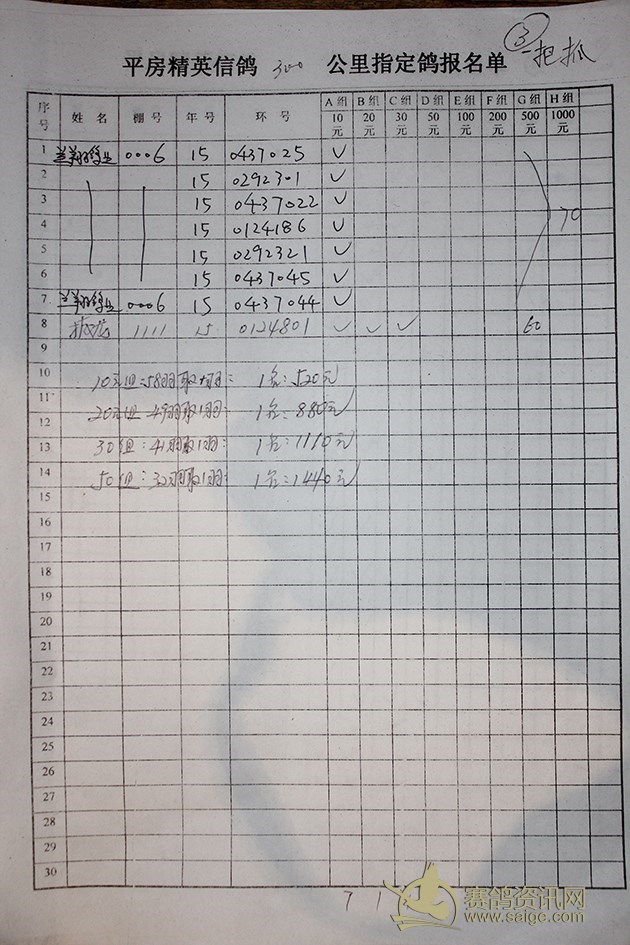 ③
一把抓
平房精英信鸽 300 公里指定鸽报名单
序号 姓 名 棚 号 年 号 环 号 A 组 10 元 B 组 20 元 C 组 30 元 D 组 50 元 E 组 100 元 F 组 200 元 G 组 500 元 H 组 1000 元
1 兰翔鸽业 0006 15 0437025 ✓
2 15 0292301 ✓
3 15 0437022 ✓ 70
4 15 0124186 ✓
5 15 0292321 ✓
6 15 0437045 ✓
7 兰翔鸽业 0006 15 0437044 ✓
8 1111 15 0124801 ✓ ✓ ✓ 60
9
10 10元组:58羽取1羽: 1名:520元
11 20元组:49羽取1羽: 1名:880元
12
13 30组:41羽取1羽: 1名:1110元
14 50组:32羽取1羽: 1名:1440元
15
16
17
18
19
20
21
22
23
24
25
26
27
28
29
30
7 1
赛鸽资讯网
www.saige.com